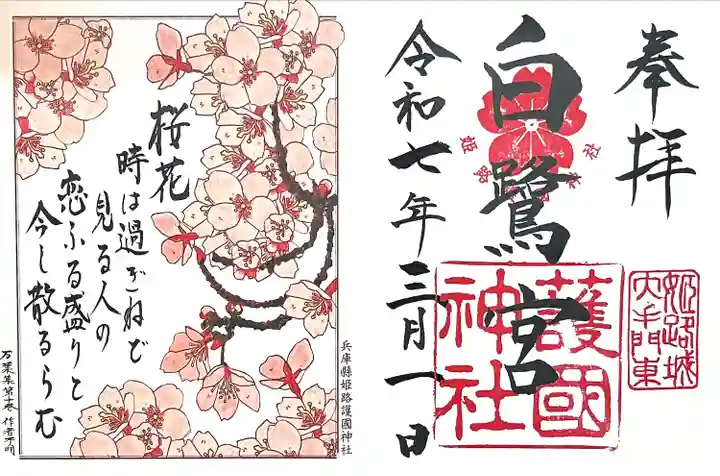 奉拝
白鷺宮
姫路
神社
護國
神社
姫路城
大手門東
令和七年三月一日
桜花
時は過ぎねど
見る人の
恋ふる盛りと
今し散るらむ
万葉集第十巻 作者不明
兵庫縣姫路護國神社